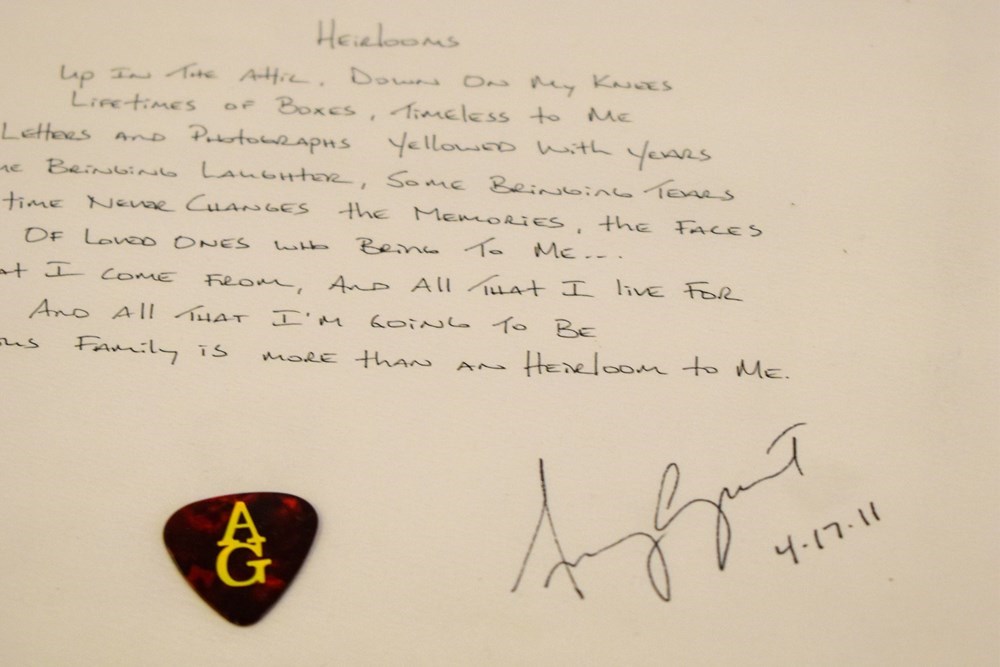 Heirlooms
Up In The Attic, Down On My Knees
Lifetimes of Boxes, Timeless to Me
Letters and Photographs Yellowed With Years
Bringing Laughter, Some Bringing Tears
time Never Changes the Memories, the Faces
Of Loved Ones who Bring To Me...
I come From, And All That I live For
And All That I'm Going To Be
Family is more than an Heirloom to Me.
Amy Grant
4·17·11
AG